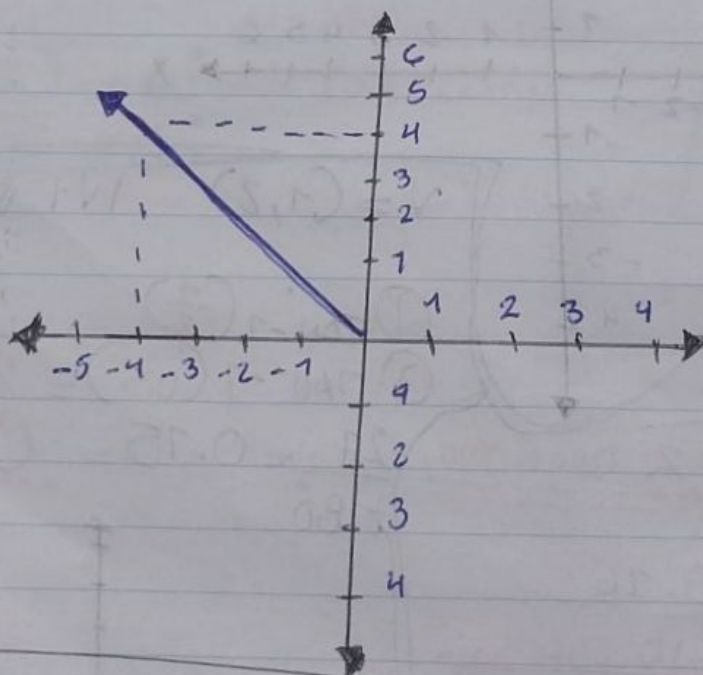 6
5
4
3
2
1
1 2 3 4
-5 -4 -3 -2 -1
1
2
3
4